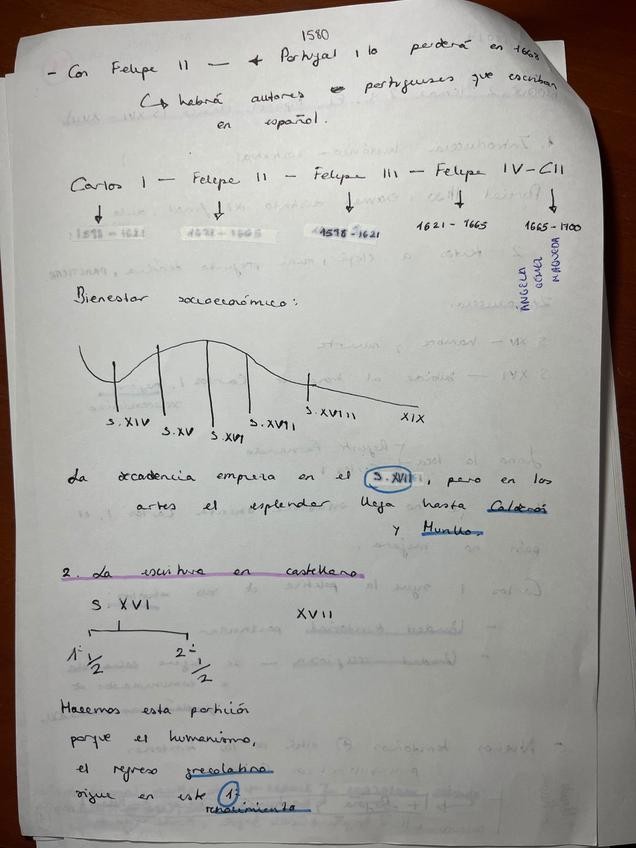 1580
- Con Felipe II — + Portugal, lo perderá en 1668
↳ habrá autores portugueses que escriban
en español.
Carlos I — Felipe II — Felipe III — Felipe IV - CII
1598 - 1621 1621 - 1665 1598 - 1621 1621 - 1665 1665 - 1700
ÁNGELA
GÓMEZ
MAQUEDA
Bienestar socioeconómico:
S. XIV S. XV S. XVI S. XVII S. XVIII XIX
La decadencia empieza en el S. XVII, pero en las
artes el esplendor llega hasta Calderón
y Murillo.
2. La escritura en castellano
S XVI XVII
1ª 1/2 2ª 1/2
Hacemos esta partición
porque el humanismo,
el regreso grecolatino
sigue en este 1º
renacimiento